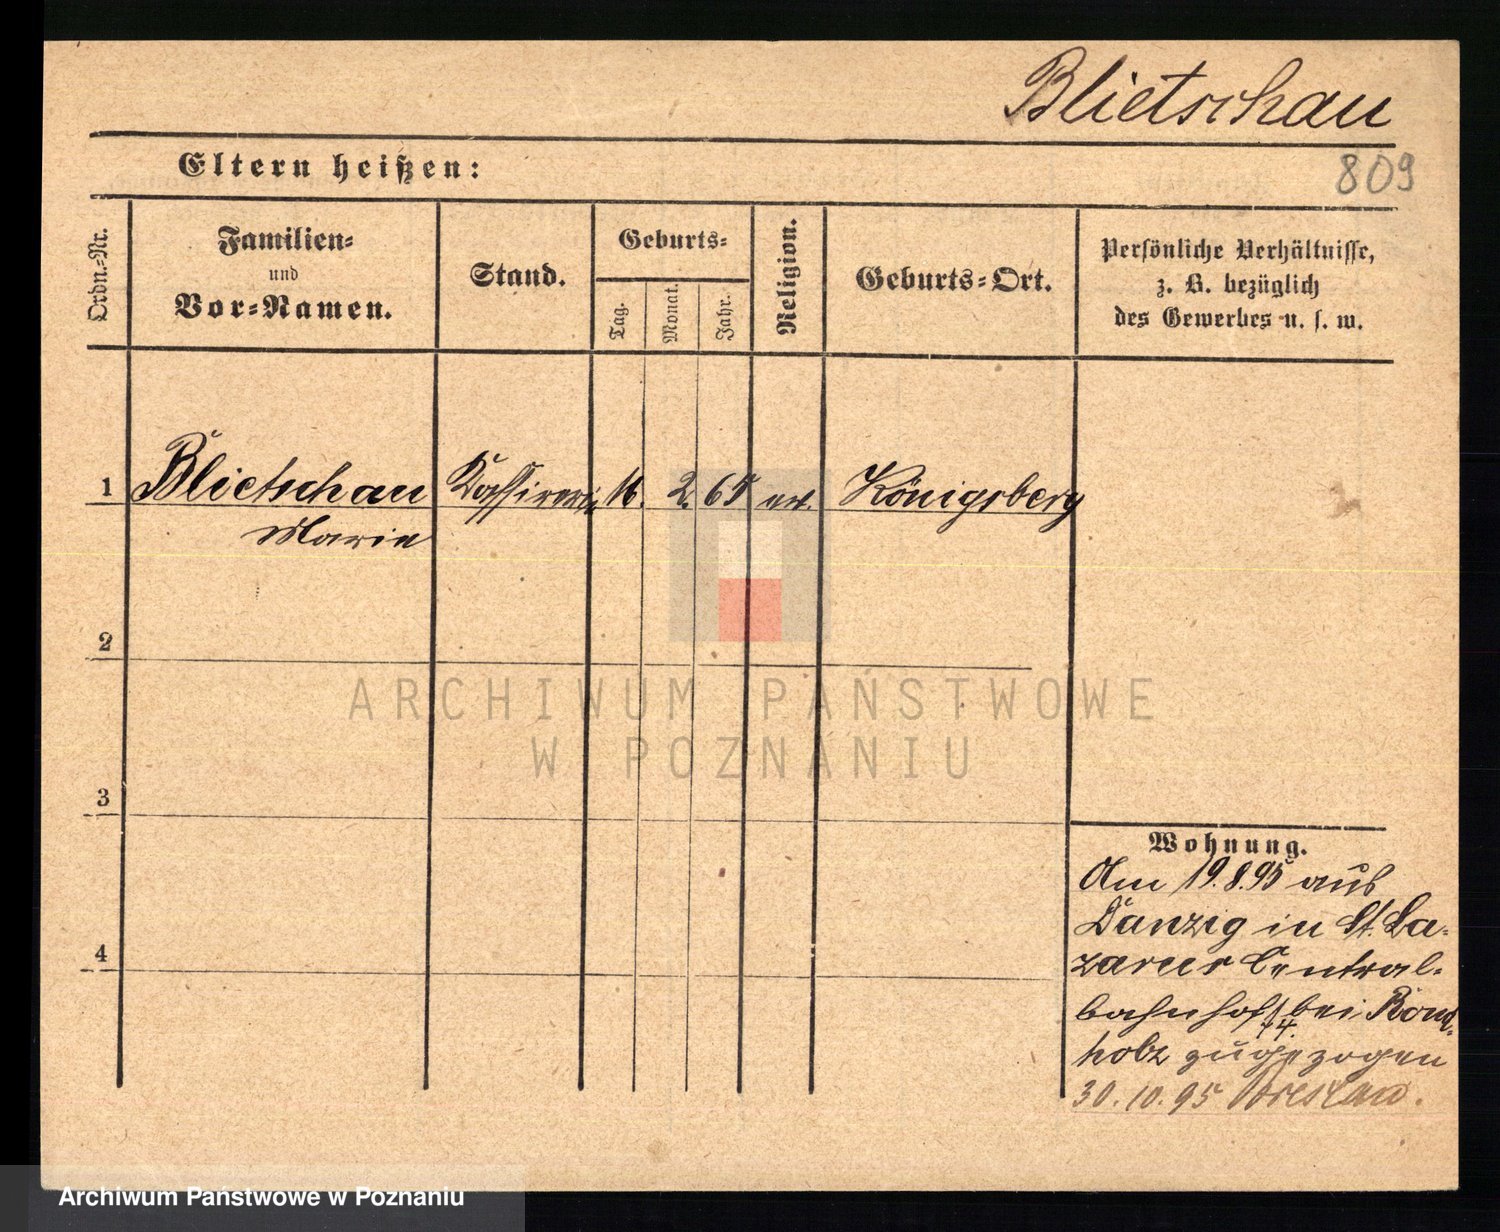 Blietschau
809
Eltern heißen:
Ordn.-Nr.
Familien-
und
Vor-Namen.
Stand.
Geburts-
Tag.
Monat.
Jahr.
Religion.
Geburts-Ort.
Persönliche Verhältnisse,
z. B. bezüglich
des Gewerbes u. s. w.
1 Blietschau Kassirerin 16. 2. 65 ev. Königsberg
Marie
2
3
4
Wohnung.
Am 19.8.95 aus
Danzig in St. La-
zarus Central-
bahnhof bei
holz zugezogen
30.10.95 Breslau.
ARCHIWUM PAŃSTWOWE
W POZNANIU
Archiwum Państwowe w Poznaniu